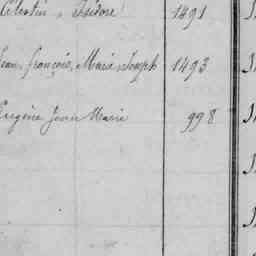 Célestin, Isidore 1491
Jean, françois, Marie, Joseph 1493
Eugène Jean Marie 998